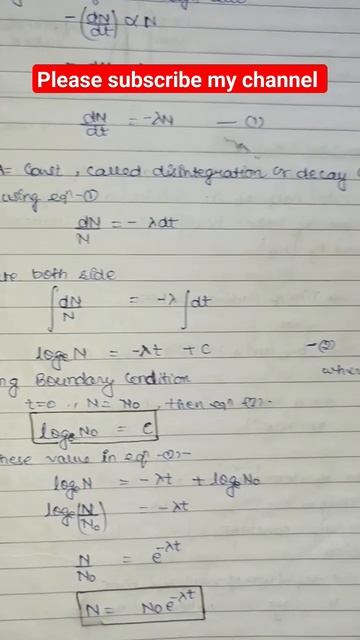 -(dN/dt) ∝ N
Please subscribe my channel
dN/dt = -λN — (1)
= Const, called disintegration or decay
using eqn-(1)
dN/N = - λdt
both side
∫dN/N = -λ∫dt
logeN = -λt + C —(2)
Boundary Condition
t=0, N= No, then eqn (2)-
logeNo = C
these value in eqn -(2)-
logeN = -λt + logeNo
loge(N/No) = -λt
N/No = e^-λt
N = Noe^-λt